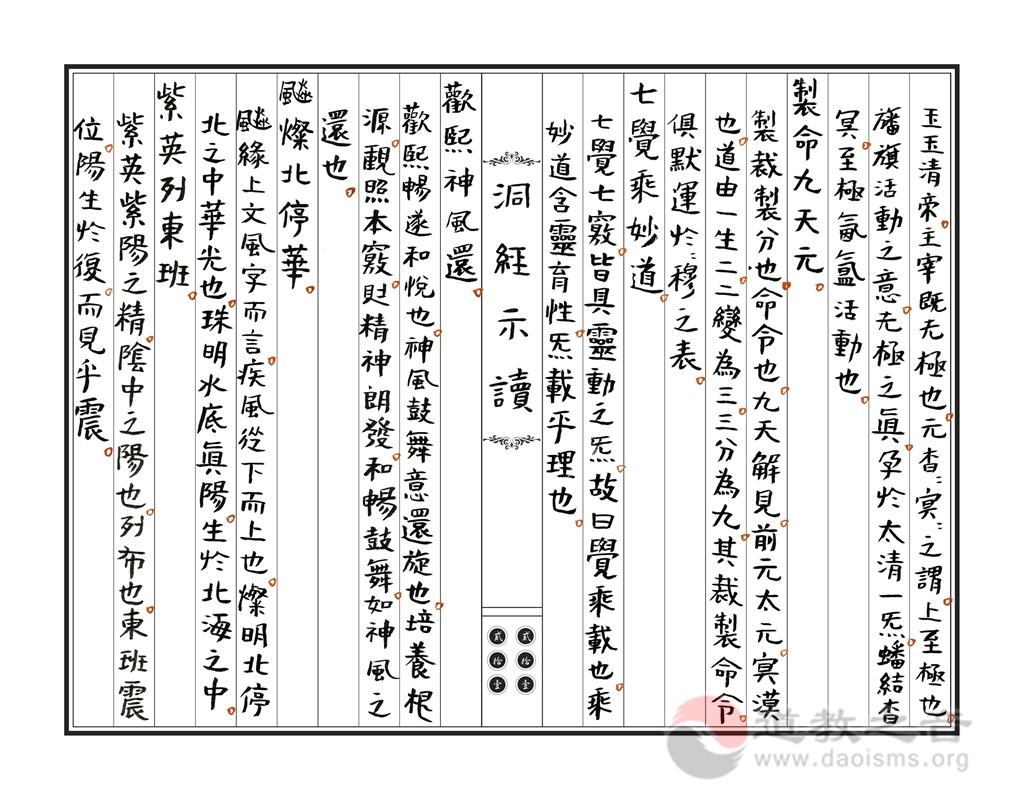 玉玉清帝主宰既无極也。元杳〻冥〻之謂。上至極也。
旛旗活動之意。无極之真。孕於太清一炁。蟠結杳
冥。至極氤氲活動也。
製命九天元。
製裁製分也。命令也。九天解見前。元太元。冥漠
也。道由一生二。二變為三。三分為九。其裁製命令。
俱默運於〻穆之表。
七覺乘妙道。
七覺七竅。皆具靈動之炁。故曰覺。乘載也。乘
妙道含靈育性。炁載乎理也。
洞經示讀
貳拾壹
貳拾壹
歡熙神風還。
歡熙暢遂和悅也。神風鼓舞意。還旋也。培養根
源。觀照本竅。則精神朗發。和暢鼓舞。如神風之
還也。
飈燦北停華。
飈緣上文風字而言。疾風從下而上也。燦明。北停
北之中。華光也。珠明水底。真陽生於北海之中。
紫英列東班。
紫英紫陽之精。陰中之陽也。列布也。東班震
位。陽生於復。而見乎震。
道教之音
www.daoisms.org